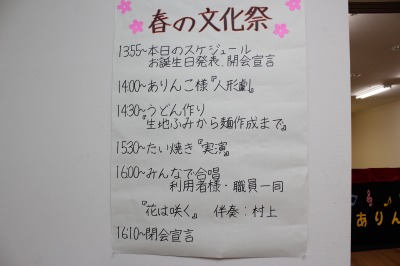 春の文化祭
13:55~本日のスケジュール
お誕生日発表、開会宣言
14:00~ありんこ様『人形劇』
14:30~うどん作り
『生地ふみから麺作成まで』
15:30~たい焼き『実演』
16:00~みんなで合唱
利用者様・職員一同
『花は咲く』 伴奏:村上
16:10~閉会宣言
ありん